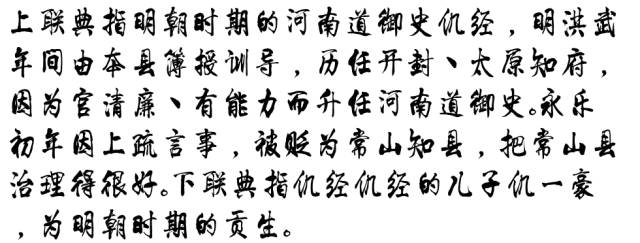 上联典指明朝时期的河南道御史仉经，明洪武
年间由本县簿授训导，历任开封、太原知府，
因为官清廉、有能力而升任河南道御史。永乐
初年因上疏言事，被贬为常山知县，把常山县
治理得很好。下联典指仉经仉经的儿子仉一豪
，为明朝时期的贡生。